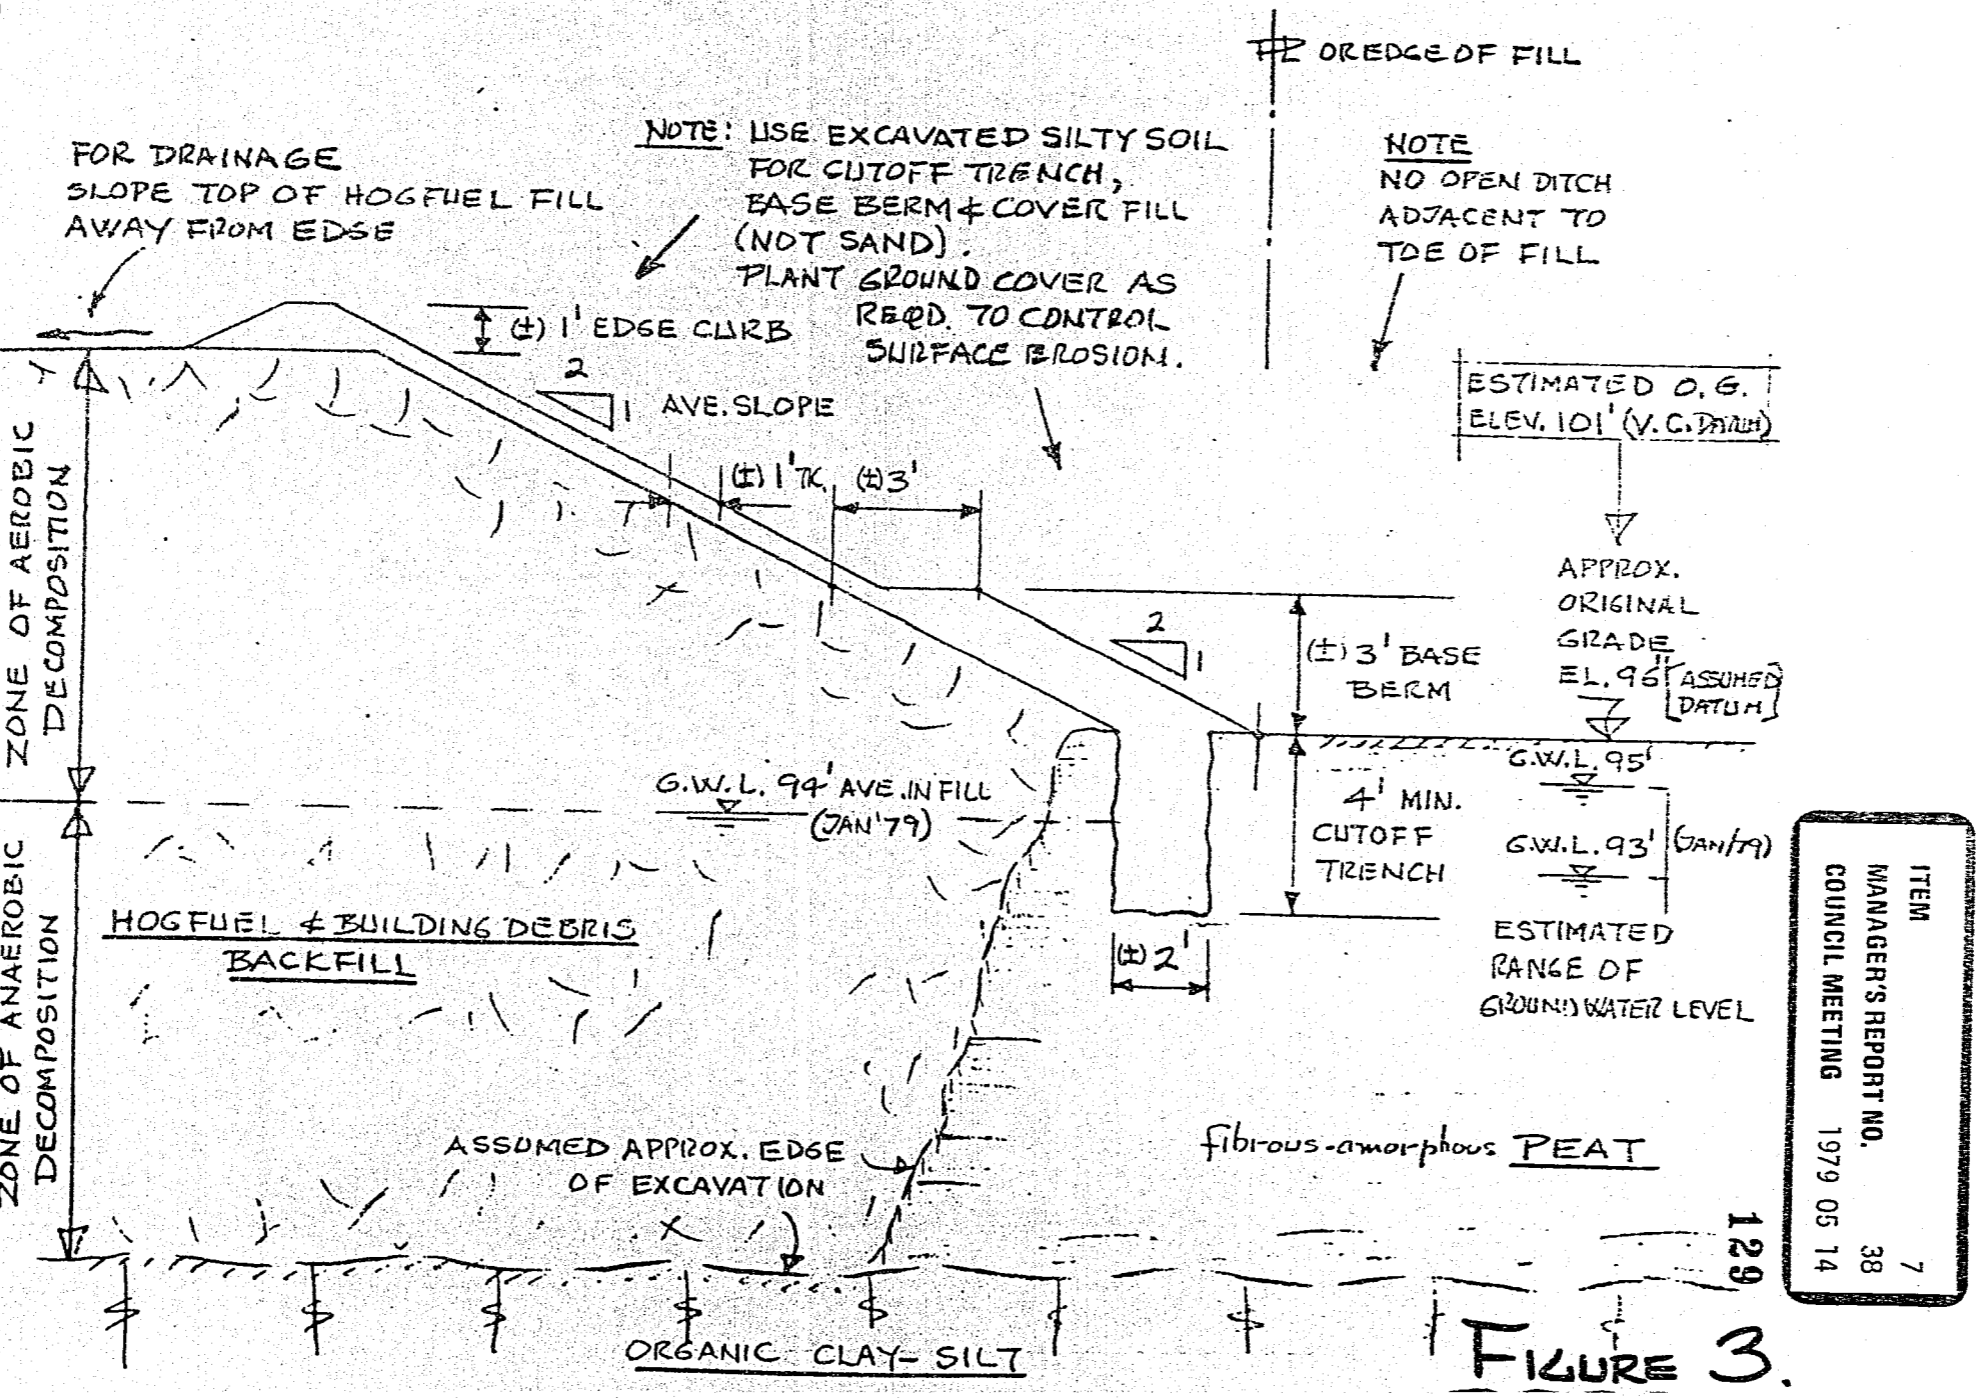 PL OR EDGE OF FILL
FOR DRAINAGE
SLOPE TOP OF HOGFUEL FILL
AWAY FROM EDGE
NOTE: USE EXCAVATED SILTY SOIL
FOR CUTOFF TRENCH,
BASE BERM & COVER FILL
(NOT SAND).
PLANT GROUND COVER AS
REQD. TO CONTROL
SURFACE EROSION.
NOTE
NO OPEN DITCH
ADJACENT TO
TOE OF FILL
(±) 1' EDGE CURB
2
1
AVE. SLOPE
ESTIMATED O.G.
ELEV. 101' (V.C. DATUM)
(±) 1' TK.
(±) 3'
APPROX.
ORIGINAL
GRADE
EL. 96' [ASSUMED
DATUM]
2
1
(±) 3' BASE
BERM
ZONE OF AEROBIC
DECOMPOSITION
G.W.L. 94' AVE. IN FILL
(JAN '79)
4' MIN.
CUTOFF
TRENCH
G.W.L. 95'
G.W.L. 93' (JAN/79)
ESTIMATED
RANGE OF
GROUNDWATER LEVEL
(±) 2'
ZONE OF ANAEROBIC
DECOMPOSITION
HOGFUEL & BUILDING DEBRIS
BACKFILL
ASSUMED APPROX. EDGE
OF EXCAVATION
fibrous-amorphous PEAT
ORGANIC CLAY-SILT
ITEM 7
MANAGER'S REPORT NO. 38
COUNCIL MEETING 1979 05 14
129
FIGURE 3.